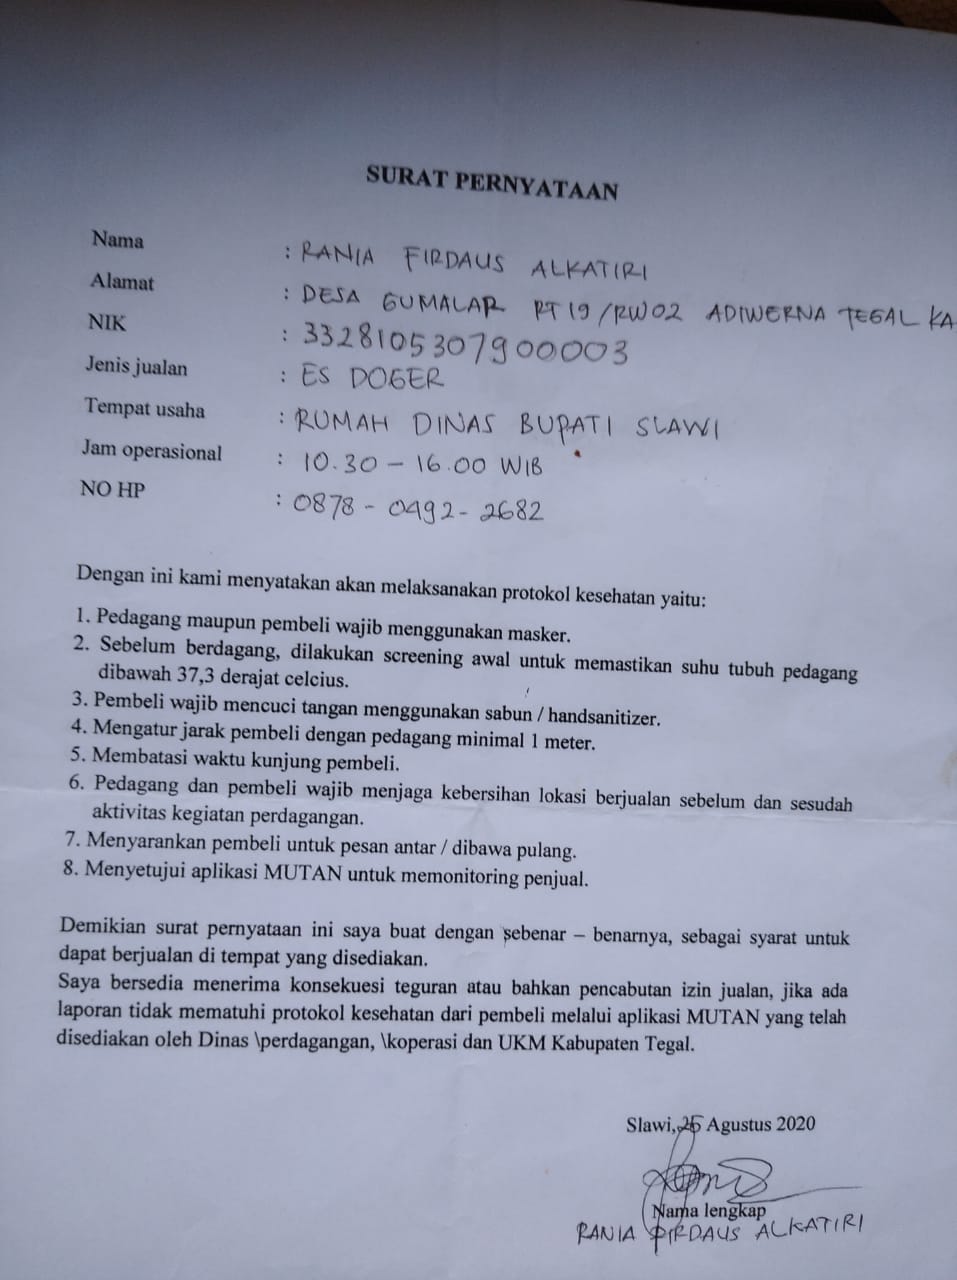 SURAT PERNYATAAN
Nama : RANIA FIRDAUS ALKATIRI
Alamat : DESA GUMALAR RT 19/RW 02 ADIWERNA TEGAL KA
NIK : 3328105307900003
Jenis jualan : ES DOGER
Tempat usaha : RUMAH DINAS BUPATI SLAWI
Jam operasional : 10.30 - 16.00 WIB
NO HP : 0878 - 0492 - 2682
Dengan ini kami menyatakan akan melaksanakan protokol kesehatan yaitu:
1. Pedagang maupun pembeli wajib menggunakan masker.
2. Sebelum berdagang, dilakukan screening awal untuk memastikan suhu tubuh pedagang
dibawah 37,3 derajat celcius.
3. Pembeli wajib mencuci tangan menggunakan sabun / handsanitizer.
4. Mengatur jarak pembeli dengan pedagang minimal 1 meter.
5. Membatasi waktu kunjung pembeli.
6. Pedagang dan pembeli wajib menjaga kebersihan lokasi berjualan sebelum dan sesudah
aktivitas kegiatan perdagangan.
7. Menyarankan pembeli untuk pesan antar / dibawa pulang.
8. Menyetujui aplikasi MUTAN untuk memonitoring penjual.
Demikian surat pernyataan ini saya buat dengan sebenar – benarnya, sebagai syarat untuk
dapat berjualan di tempat yang disediakan.
Saya bersedia menerima konsekuesi teguran atau bahkan pencabutan izin jualan, jika ada
laporan tidak mematuhi protokol kesehatan dari pembeli melalui aplikasi MUTAN yang telah
disediakan oleh Dinas \perdagangan, \koperasi dan UKM Kabupaten Tegal.
Slawi, Agustus 2020
Nama lengkap
RANIA FIRDAUS ALKATIRI